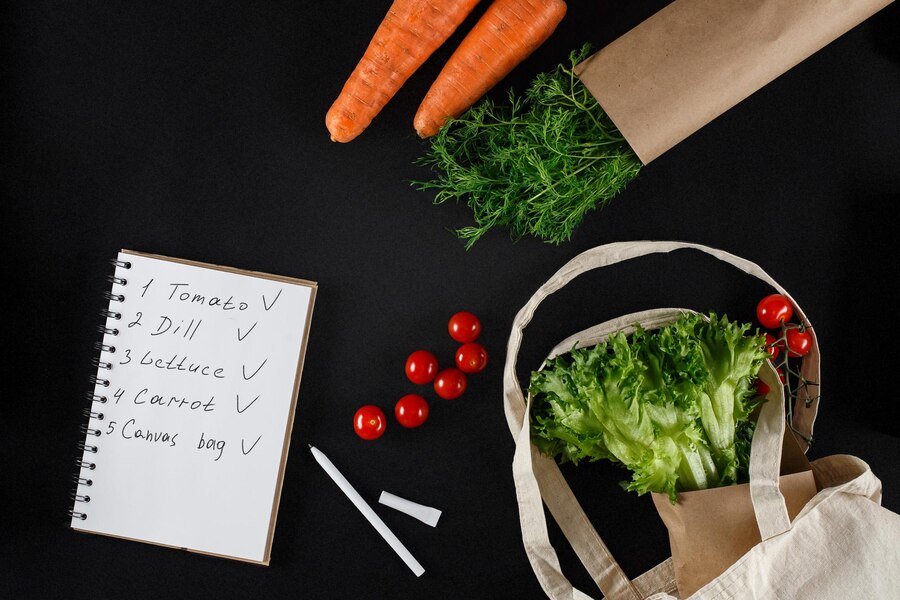 1 Tomato ✓
2 Dill ✓
3 Lettuce ✓
4 Carrot ✓
5 Canvas bag ✓